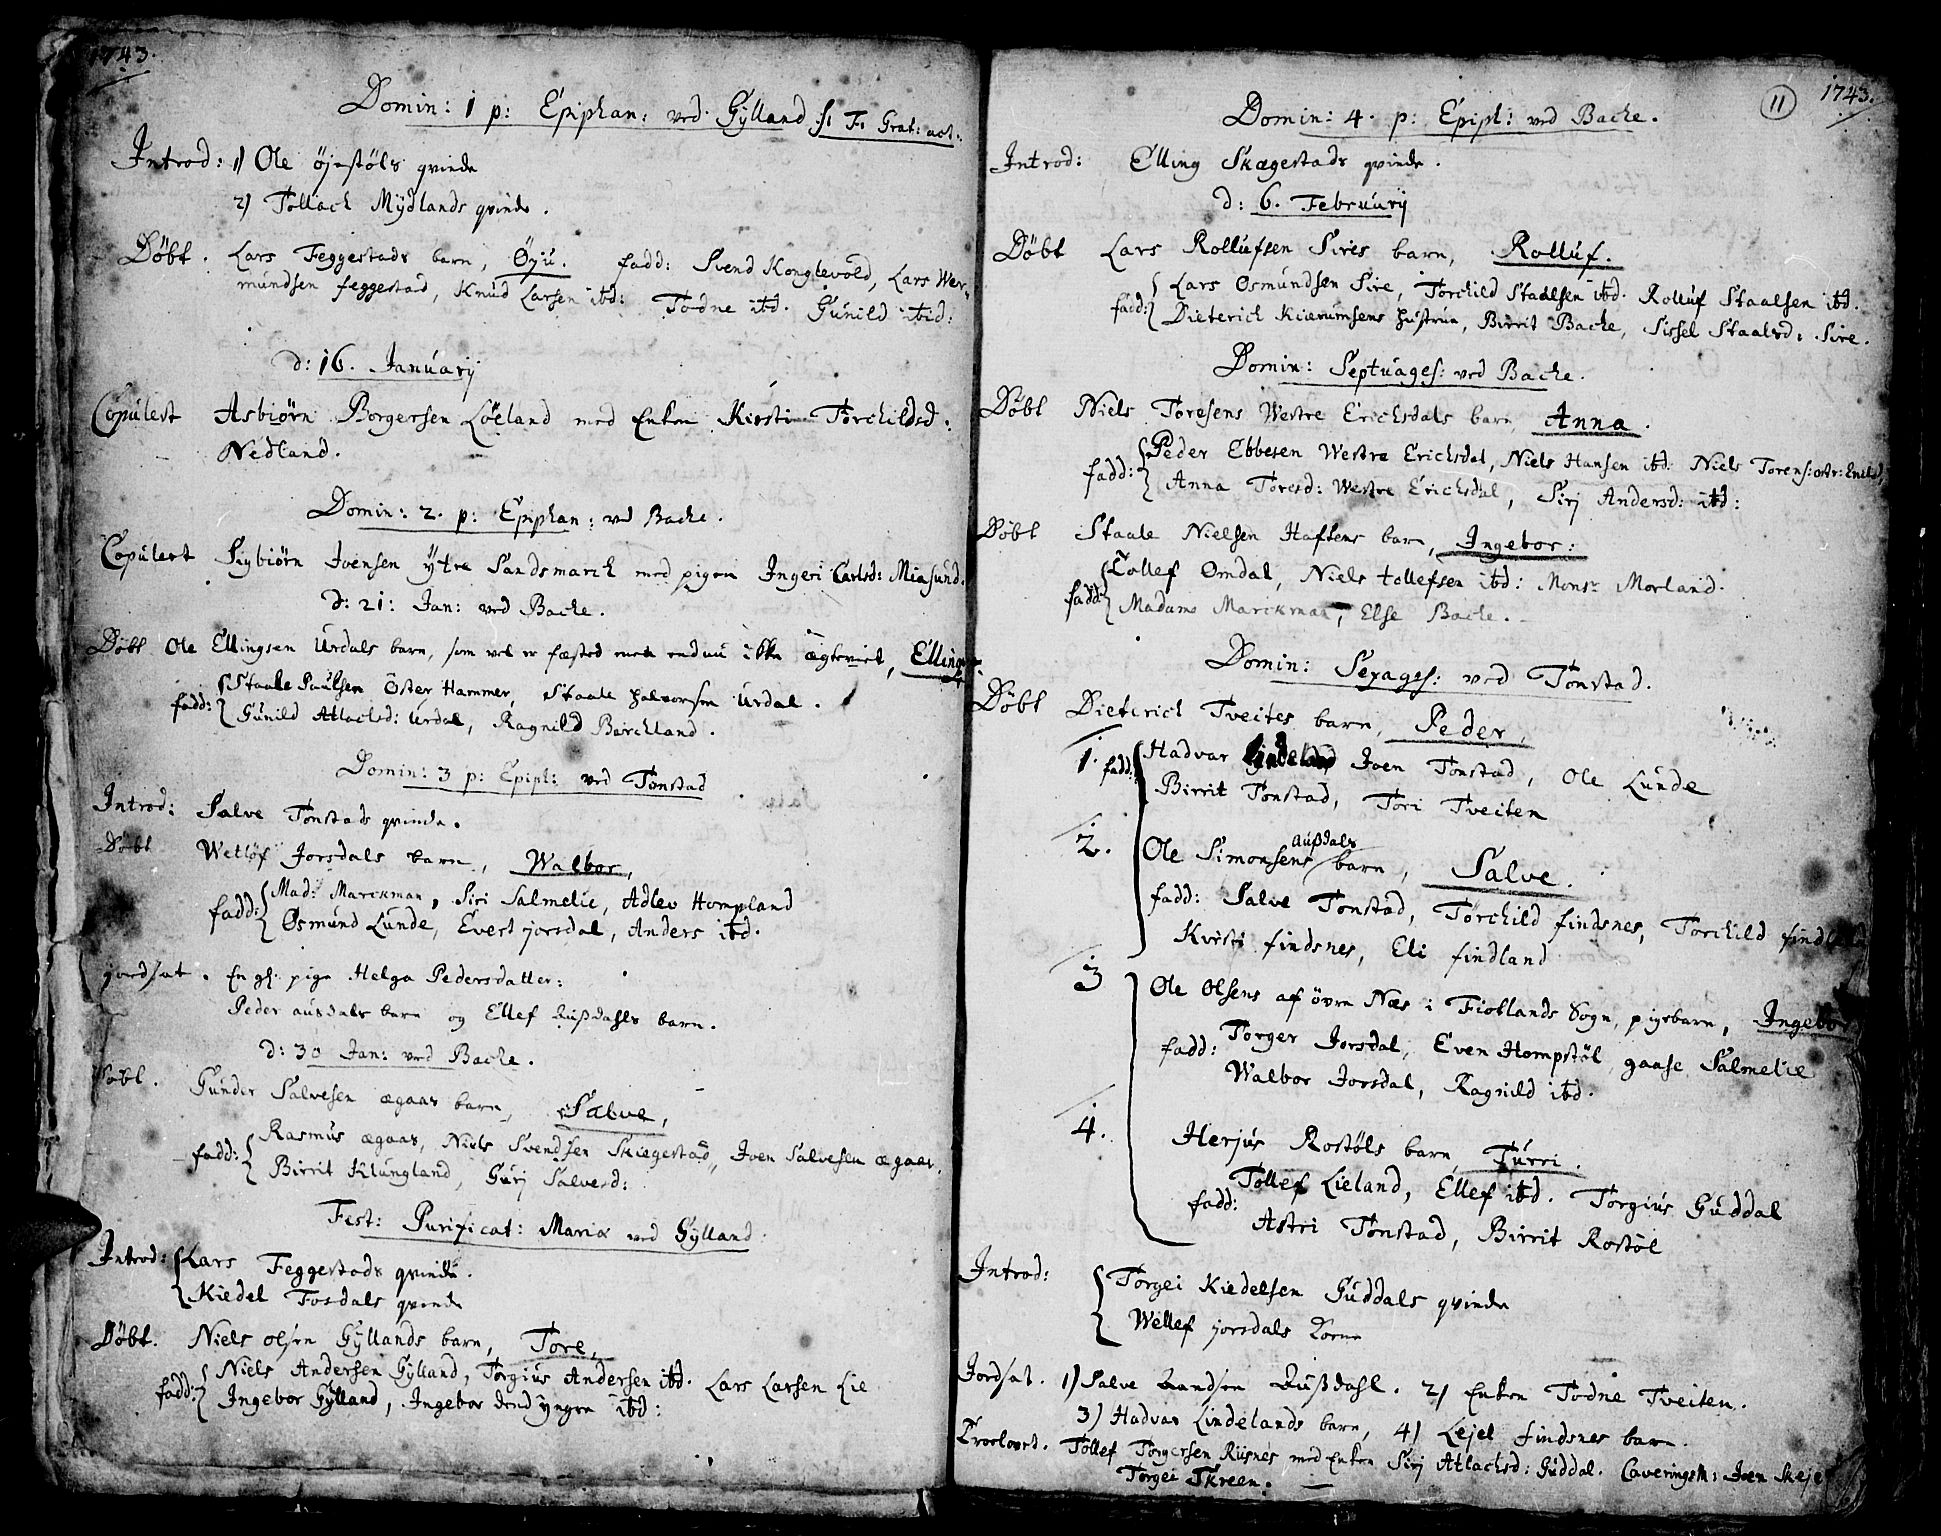 1743.
Domin: 1 p: Epiphan: ved Gylland f: F: Grat: act.
Introd: 1) Ole öjestöls qvinde
2) Tollach Mydlands qvinde.
Döbt. Lars Feggestads barn, Öyü. fadd: Svend Konglevold, Lars Wer-
mündsen feggestad, Knud Larsen ibd: Todne ibd. Günild ibid:
d: 16. Januarij
Copülert Asbiörn Borgersen Löeland med Enken Kirsti Torchildsd:
Nedland.
Domin: 2. p: Epiphan: ved Bache.
Copülert Sigbiörn Joensen ytre Sandsmarck med pigen Ingeri Carlsd: Miasund.
d: 21: Jan: ved Bache.
Döbt Ole Ellingsen Urdals barn, som vel er fæsted men endnu ikke ægteviet, Elling
fadd: Staale Paulsen Öster Hammer, Staale Halvorsen Urdal.
Günild Atlachsd: Urdal, Ragnild Barckland.
Domin: 3 p: Epiph: ved Tonstad
Introd: Salve Tonstads qvinde.
Döbt Wetlöf Jorsdals barn, Walbor,
fadd: Mad: Marckman, Siri Salmelie, Adlev Hompland
Ösmund Lunde, Evert jorsdal, Anders ibd.
jordsat. En gl: pige Helga Pedersdatter:
Peder ausdals barn og Ellef Außdahls barn.
d: 30 Jan: ved Bache.
Döbt. Günder Salvesen ægaas barn, Salve,
fadd: Rasmus ægaas, Niels Svendsen Skiegestad, Joen Salvesen ægaas.
Birrit Klüngland, Gürj Salvesd:
Fest: Purificat: Mariæ ved Gylland.
Introd: Lars Feggestads qvinde.
Kiedel Fosdals qvinde
Döbt. Niels olsen Gyllands barn, Tore,
fadd: Niels Andersen Gylland, Torgiüs Andersen ibd. Lars Larsen Lie
Ingebor Gylland, Ingebor dend yngre ibd:
11 1743.
Domin: 4. p: Epiph: ved Bache.
Introd: Elling Skægestads qvinde.
d: 6. Februarij
Döbt Lars Rollufsen Sires barn, Rolluf.
fadd: Lars Osmundsen Sire, Torchild Staalsen ibd. Rolluf Staalsen ibd.
Dieterich Kierumsens Hustrue, Birrit Bache, Sissel Staalsd: Sire.
Domin: Septuages: ved Bache.
Döbt Niels Toresens Westre Erichsdals barn Anna.
fadd: Peder Ebbesen Westre Erichsdal, Niels Hansen ibd: Niels Torens:
Anna Toresd: Westre Erichsdal, Sirj Andersd: ibd:
Döbt Staale Nielsen Haftens barn, Ingebor:
fadd: Tollef Omdal, Niels tollefsen ibd: Monsr Morland.
Madame Marckman, Else Bache.
Domin: Sexages: ved Tonstad.
Döbt Dieterich Tveites barn, Peder,
1. fadd: Hadvar Joen Tonstad, Ole Lunde
Birrit Tonstad, Tori Tveiten
2. Ole Simonsens Außdals barn, Salve.
fadd: Salve Tonstad, Torchild findsnes, Torchild findland
Kirsti findsnes, Eli findland
3 Ole Olsens af övre Næs i Fiotlands Sogn, pigebarn, Ingebor
fadd: Torger Jorsdal, Even Hompstöl, gaase Salmelie
Walbor Jorsdal, Ragnild ibd.
4. Herjus Rostöls barn, Türri.
fadd: Tollef Lieland, Ellef ibd. Torgiüs Güddal
Astri Tonstad, Birrit Rostöl
Introd: Torgei Kiedelsen Güddals qvinde
Wellef jorsdals Kone
Jordsat. 1) Salve Außdahl. 2) Enken Todne Tveiten.
3) Hadvar Lindelands barn, 4) Lejel findsnes barn.
Troelovet. Tollef Torgersen Risnes med Enken Sirj Atlachsd: Güddal. Caveringsm: Joen Skeje
Torgei Skreen.